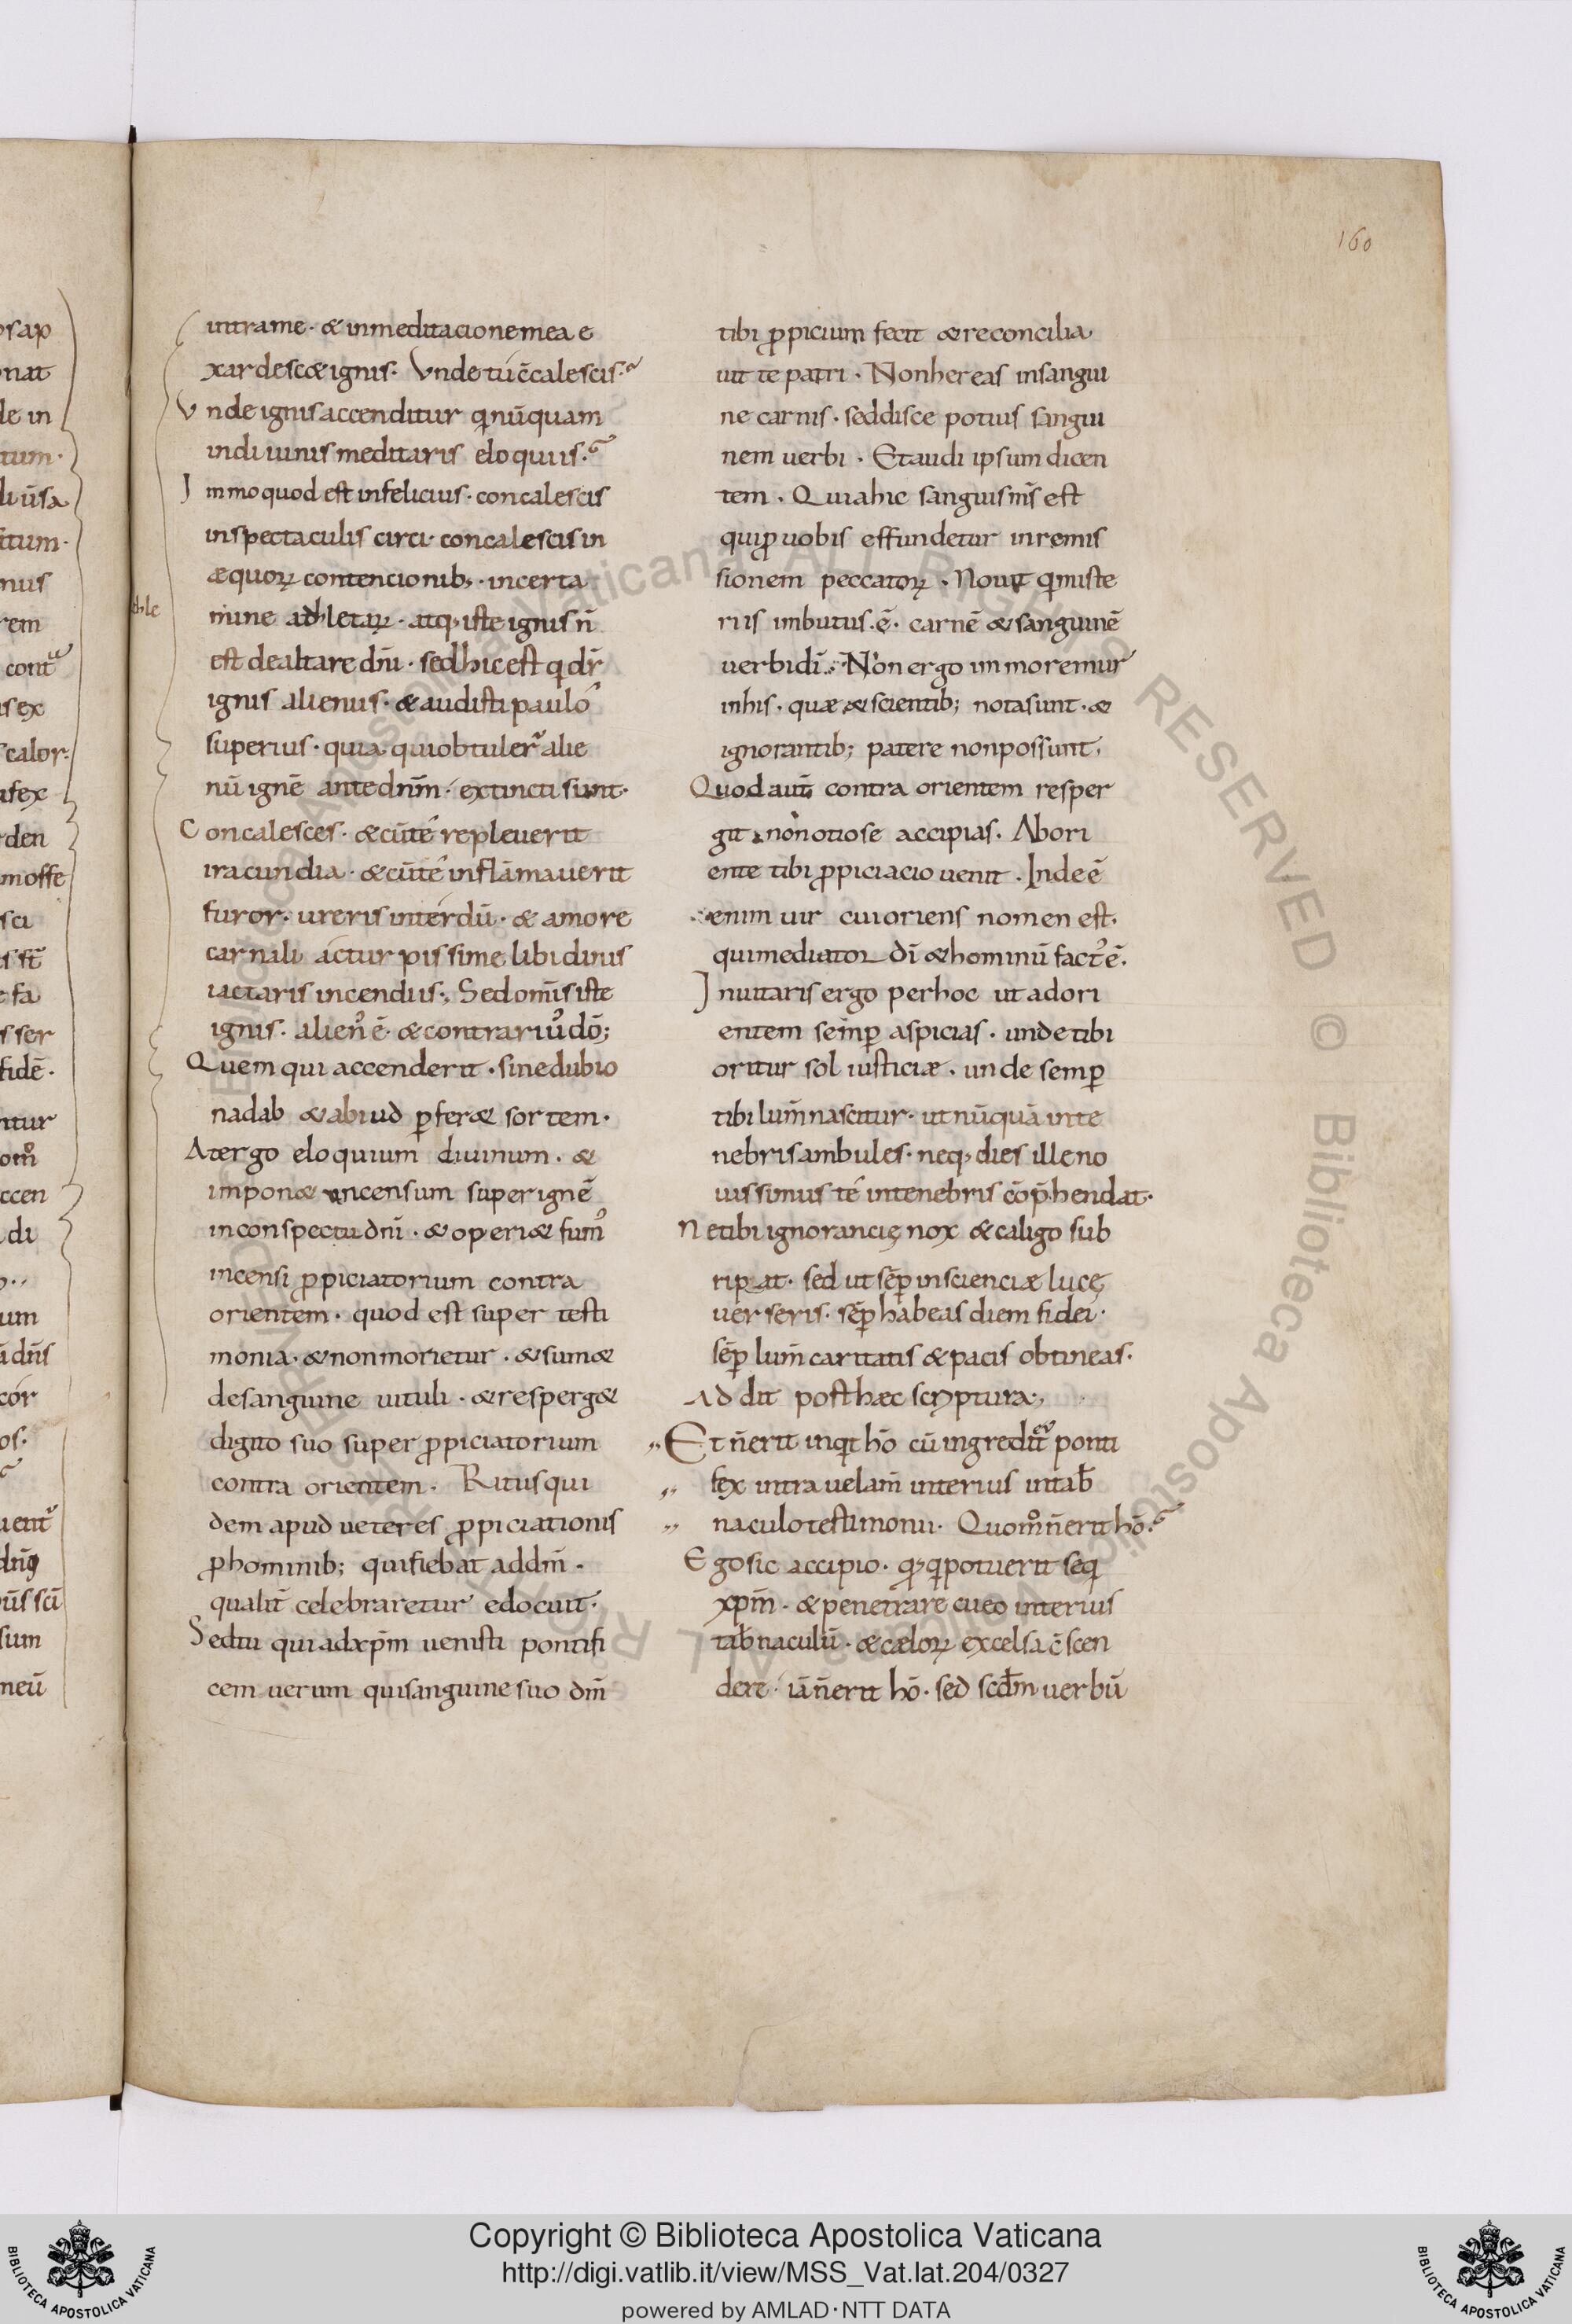 160
intrame · & inmeditacionemea e
xardesc& ignis · Unde tú c̄calescis ·
Unde ignis accenditur qi nūquam
indiuinis meditaris eloquiis ·
Immo quod est infelicius · concalescis
inspectaculis circi · concalescis in
æquoꝝ contencionib; · incerta
mine adhletaꝝ · atq; iste ignis n̄
est dealtare dn̄i · sed hic est q dr̄
ignis alienus · & audisti pauló
superius · quia qui obtuler̄ alie
nū ignē ante dnm̄ · extincti sunt ·
Concalesces · & cū té repleuerit
iracundia · & cū té inflāmauerit
furor · ureris interdū · & amore
carnali actur pissime libidinis
iactaris incendiis · Sed omīs iste
ignis · alien᾿ ē · & contrariu᾿ dō;
Quem qui accenderit · sinedubio
nadab & abiud ꝑfer& sortem ·
Atergo eloquium diuinum · &
impon& incensum super ignē
inconspectu dn̄i · & operi& fum᾿
incensi ꝓpiciatorium contra
orientem · quod est super testi
monia · & non morietur · & sum&
desanguine uituli · & resperg&
digito suo super ꝓpiciatorium
contra orientem · Ritus qui
dem apud ueteres ꝓpiciationis
ꝓ hominib; qui fiebat ad dm̄ ·
qualit̄ celebraretur edocuit ·
Sed tu qui ad xpm̄ uenisti pontifi
cem uerum qui sanguine suo dm̄
hle
tibi ꝓpicium fecit & reconcilia
uit te patri · Non hereas insangui
ne carnis · sed disce potius sangui
nem uerbi · Et audi ipsum dicen
tem · Quia hic sanguis ms̄ est
qui ꝓ uobis effundetur inremis
sionem peccatoꝝ · Nouit qi miste
riis imbutus · ē · carnē & sanguinē
uerbi dī · Non ergo immoremur
inhis · quæ & scientib; nota sunt · &
ignorantib; patere non possunt ·
Quod aut̄ contra orientem resper
git · nón otiose accipias · Abori
ente tibi ꝓpiciacio uenit · Inde ē
enim uir cui oriens nomen est ·
qui mediator dī & hominū fact᾿ ē ·
Inuitaris ergo per hoc ut adori
entem semꝑ aspicias · unde tibi
oritur sol iusticiæ · unde semꝑ
tibi lum̄ nascitur · ut nūquā inte
nebris ambules · neq; dies ille no
uissimus té intenebris cōp̄hendat ·
Ne tibi ignorancię nox & caligo sub
ripiat · sed ut sēꝑ inscienciæ lucę
uerseris · sēꝑ habeas diem fidei ·
sēꝑ lum̄ caritatis & pacis obtineas ·
Addit post hæc scriptura ·
Et n̄ erit inqt hō cū ingredit᾿ ponti
fex intra uelam̄ interius intab̄
naculo testimonii · Quom᾿ n̄ erit hō ·
Ego sic accipio · q; qi potuerit seqi
xpm̄ · & penetrare cu eo interius
tab̄naculū · & cæloꝝ excelsa c̄scen
dere · iā n̄ erit hō · sed scd̄m uerbū
Copyright © Biblioteca Apostolica Vaticana
http://digi.vatlib.it/view/MSS_Vat.lat.204/0327
powered by AMLAD·NTT DATA
BIBLIOTECA APOSTOLICA VATICANA
BIBLIOTECA APOSTOLICA VATICANA